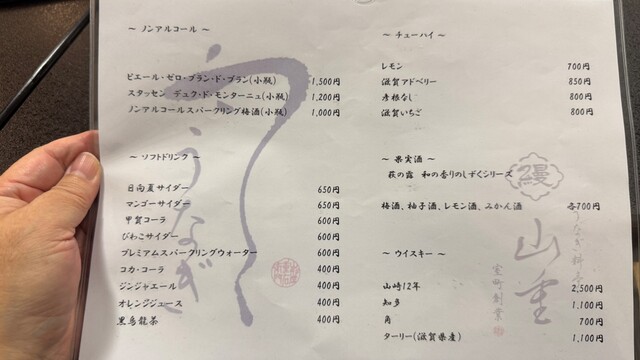 ～ ノンアルコール ～
ピエール・ゼロ・ブラン・ド・ブラン(小瓶) 1,500円
スタッセン デュク・ド・モンターニュ(小瓶) 1,200円
ノンアルコールスパークリング梅酒(小瓶) 1,000円
～ ソフトドリンク ～
日向夏サイダー 650円
マンゴーサイダー 650円
甲賀コーラ 600円
びわこサイダー 600円
プレミアムスパークリングウォーター 600円
コカ・コーラ 400円
ジンジャエール 400円
オレンジジュース 400円
黒烏龍茶 400円
うなぎ
～ チューハイ ～
レモン 700円
滋賀アドベリー 850円
彦根なし 800円
滋賀いちご 800円
～ 果実酒 ～
萩の露 和の香りのしずくシリーズ
梅酒、柚子酒、レモン酒、みかん酒 各700円
～ ウイスキー ～
山崎12年 2,500円
知多 1,100円
角 700円
ターリー(滋賀県産) 1,100円
うなぎ料亭
山重
室町創業